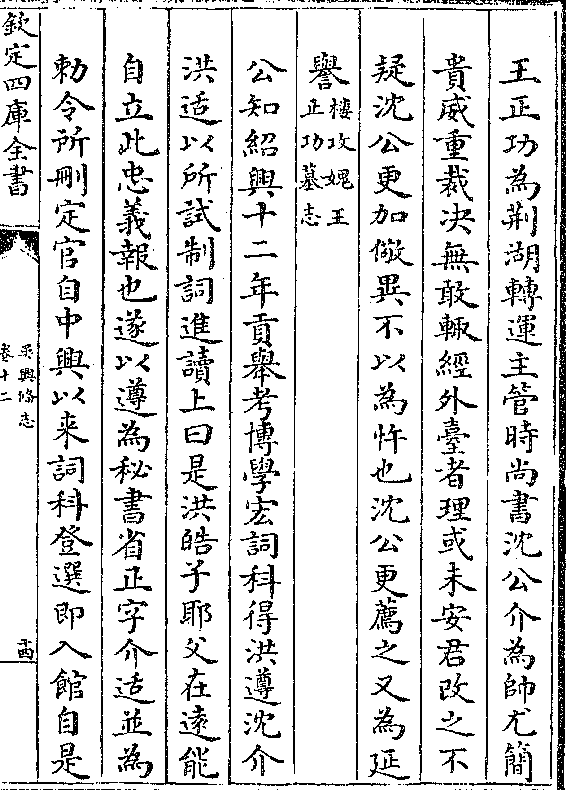 王正功為荆湖轉運主管時尚書沈公介為帥尤簡
貴威重裁决無敢輙經外臺者理或未安君改之不
疑沈公更加儆異不以為忤也沈公更薦之又為延
譽樓攻媿王正功墓志
公知紹興十二年貢舉考博學宏詞科得洪遵沈介
洪适以所試制詞進讀上曰是洪皓子耶父在遠能
自立此忠義報也遂以遵為秘書省正字介适並為
勅令所刪定官自中興以来詞科登選即入館自是
欽定四庫全書
吳興備志
卷十二